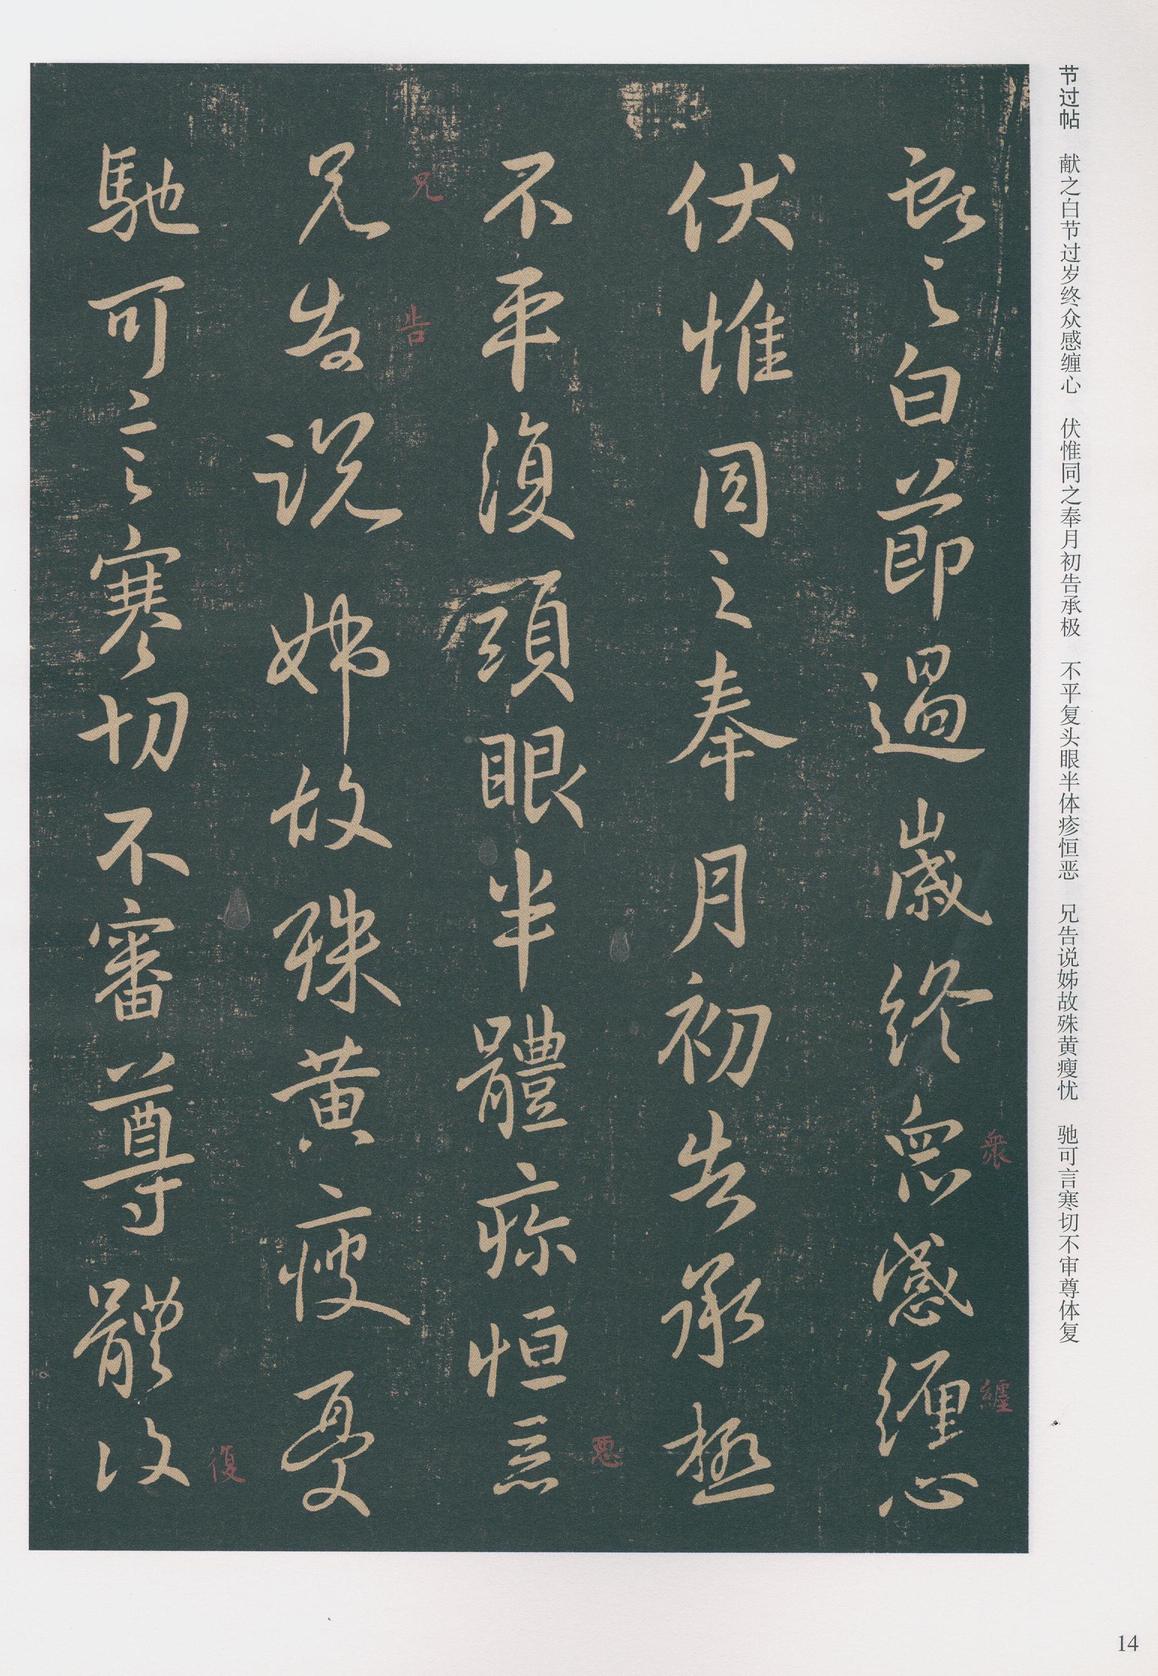 节过帖 献之白节过岁终众感缠心 伏惟同之奉月初告承极 不平复头眼半体疹恒恶 兄告说姊故殊黄瘦忧 驰可言寒切不审尊体复
献之白節過歲終眾感纏心
衆
纏
伏惟同之奉月初告承極
不平復頭眼半體疹恒惡
惡
兄告説姊故殊黄瘦憂
兄
告
馳可言寒切不審尊體復
復
14